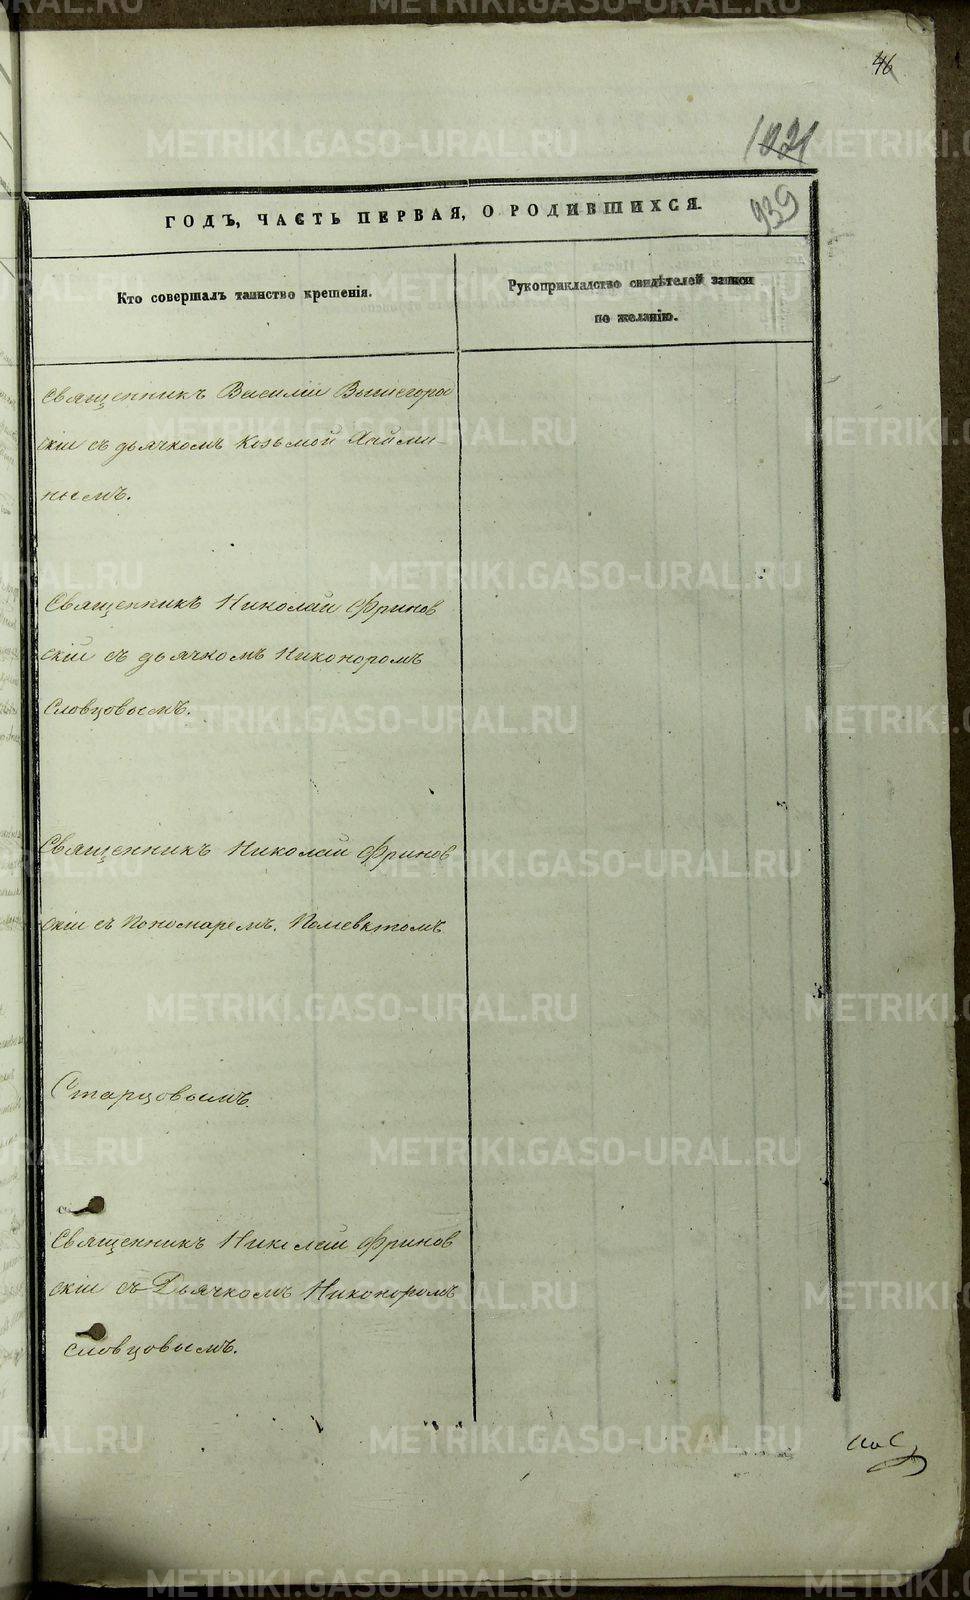 46
1021
939
ГОДЪ, ЧАСТЬ ПЕРВАЯ, О РОДИВШИХСЯ.
Кто совершалъ таинство крещенія.
Рукоприкладство свидѣтелей записи
по желанію.
Священникъ Василій Вышегород
скій съ дьячкомъ Козьмой Хайми-
нымъ.
Священникъ Николай Фринов
скій съ дьячкомъ Никоноромъ
Словцовымъ.
Священникъ Николай Фринов
скій съ Пономаремъ. Полиевктомъ
Старцовымъ.
Священникъ Николай Фринов
скій съ Дьячкомъ Никоноромъ
Словцовымъ.
METRIKI.GASO-URAL.RU